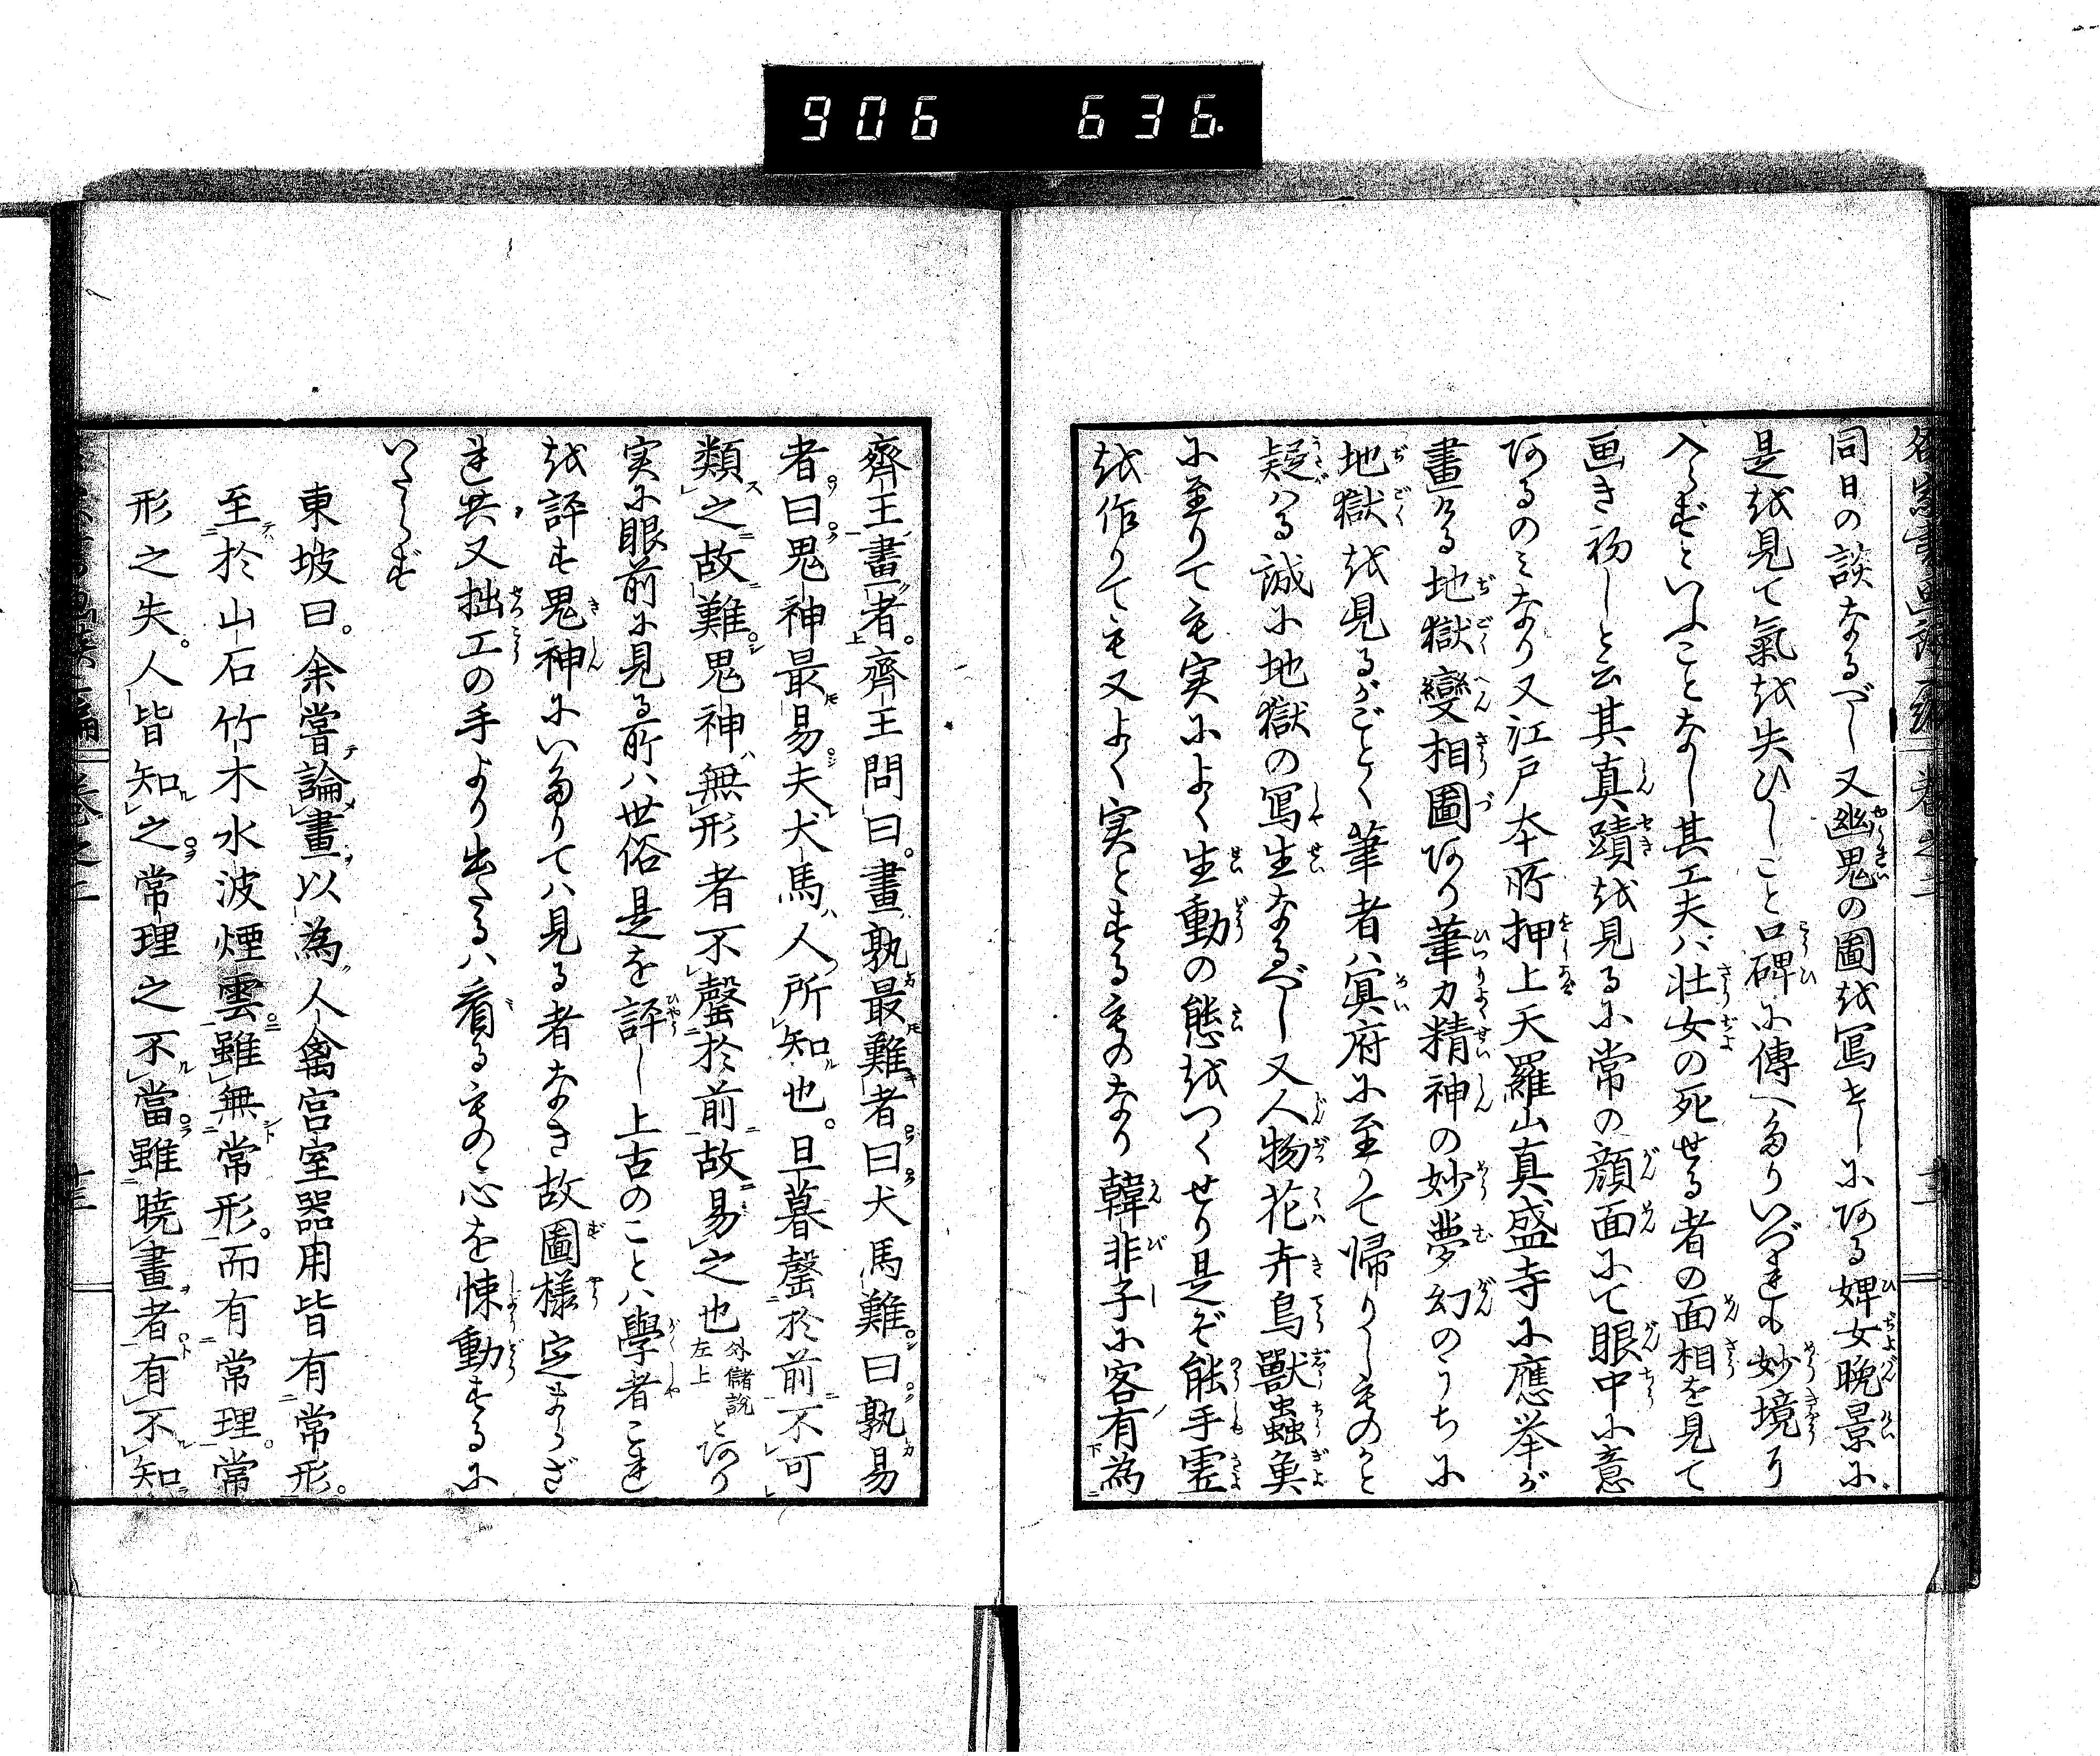 906 636
同日の談なるべし又幽鬼の圖を冩せしにある婢女晩景に
是を見て氣を失ひしこと口碑に傳へたりいづれも妙境に
入らずといふことなし其工夫は壮女の死せる者の面相を見て
画き初しと云其真蹟を見るに常の顔面にて眼中に意
あるのミなり又江戸本所押上天羅山真盛寺に應挙が
畫ける地獄變相圖あり筆力精神の妙夢幻のうちに
地獄を見るがごとく筆者ハ冥府に至りて帰りしものかと
疑ハる誠に地獄の冩生なるべし又人物花卉鳥獸蟲魚
に至りても実によく生動の態をつくせり是ぞ能手霊
を作りても又よく実とするものなり韓非子に客有為
齊王畫者。齊王問曰。畫孰最難者曰犬馬難曰孰易
者曰鬼神最易夫犬馬人所知也。旦暮罄於前不可
類之故難鬼神無形者不罄於前故易之也外儲說左上とあり
実に眼前に見る所ハ世俗是を評し上古のことハ學者これ
を評す鬼神にいたりてハ見る者なき故圖樣定まらざ
れ共又拙工の手より出たるハ看るものゝ心を悚動するに
いたらず
東坡曰。余嘗論畫以為人禽宮室器用皆有常形。
至於山石竹木水波煙雲雖無常形。而有常理。常
形之失。人皆知之。常理之不當。雖曉畫者有不知